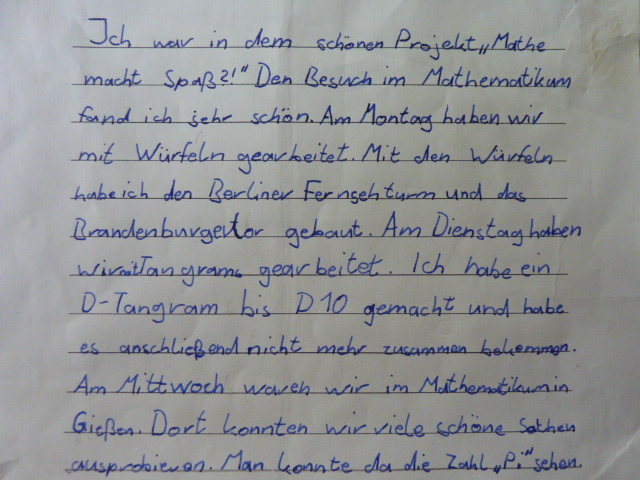 Ich war in dem schönen Projekt „Mathe
macht Spaß?!“ Den Besuch im Mathematikum
fand ich sehr schön. Am Montag haben wir
mit Würfeln gearbeitet. Mit den Würfeln
habe ich den Berliner Fernsehturm und das
Brandenburgertor gebaut. Am Dienstag haben
wir mit Tangrams gearbeitet. Ich habe ein
D-Tangram bis D10 gemacht und habe
es anschließend nicht mehr zusammen bekommen.
Am Mittwoch waren wir im Mathematikum in
Gießen. Dort konnten wir viele schöne Sachen
ausprobieren. Man konnte da die Zahl „Pi“ sehen.